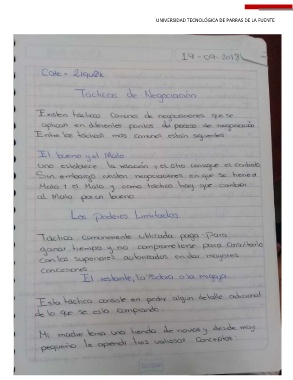 UNIVERSIDAD TECNOLÓGICA DE PARRAS DE LA FUENTE
19-09-2018
Tacticas de Negociación
Existen tacticas Comunes de negociaciones que se
aplican en diferentes puntos de proceso de negociación
Entre las tacticas mas comunes estan siguientes
El bueno y el Malo
Uno establece la relación y el otro consigue el contrato
Sin embargo existen negociaciones en que se tiene al
Malo y el Malo y como tactica hay que cambiar
al Malo por un bueno
Los Poderes Limitados
Tactica comunmente utilizada para
ganar tiempo y no comprometerse para
con los superiores autorizados en dar mayores
concesiones
El
Esta tactica consiste en pedir algun detalle adicional
de lo que se esta comprando
Mi madre tenia una tienda de novias y desde muy
pequeño le aprendi tres valiosos Conceptos